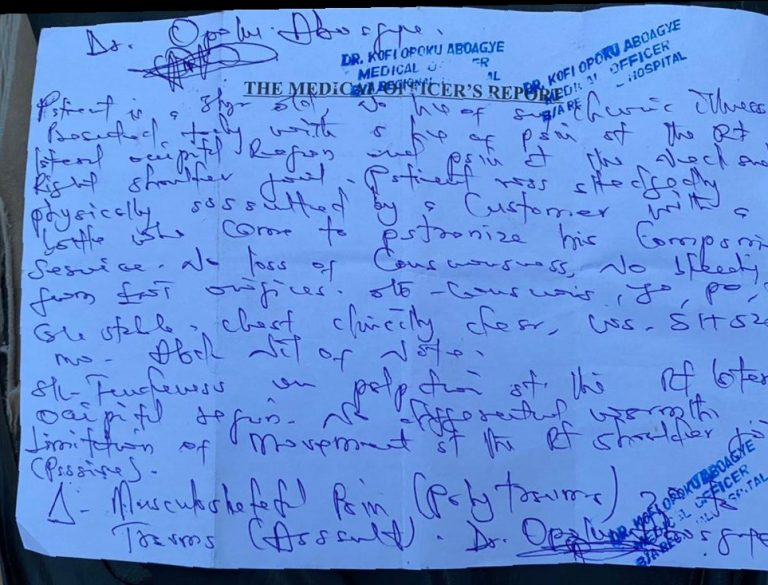 Dr. Opoku Aboagye.
DR. KOFI OPOKU ABOAGYE
MEDICAL OFFICER
DR. KOFI OPOKU ABOAGYE
MEDICAL OFFICER
HOSPITAL
THE MEDICAL OFFICER'S REPORT
Patient is a old, No hx of chronic illness
Presented today with a hx of pain at the Rt
lateral occipital Region and pain at the neck and
Right shoulder joint. Patient was allegedly
physically assaulted by a Customer with a
bottle who came to patronize his Company
service. No loss of Consciousness, No bleeding
from ENT orifices. o/e - Conscious,
stable. chest clinically clear, CVS - S1 + S2
mo. Abd Nil of Note.
Tenderness on palpation at the Rt lateral
occipital region. No differential warmth
limitation of movement at the Rt shoulder
(Passive).
Δ - Musculoskeletal Pain (Polytrauma) 2° to
Trauma (Assault). Dr. Opoku Aboagye
DR. KOFI OPOKU ABOAGYE
MEDICAL OFFICER
HOSPITAL